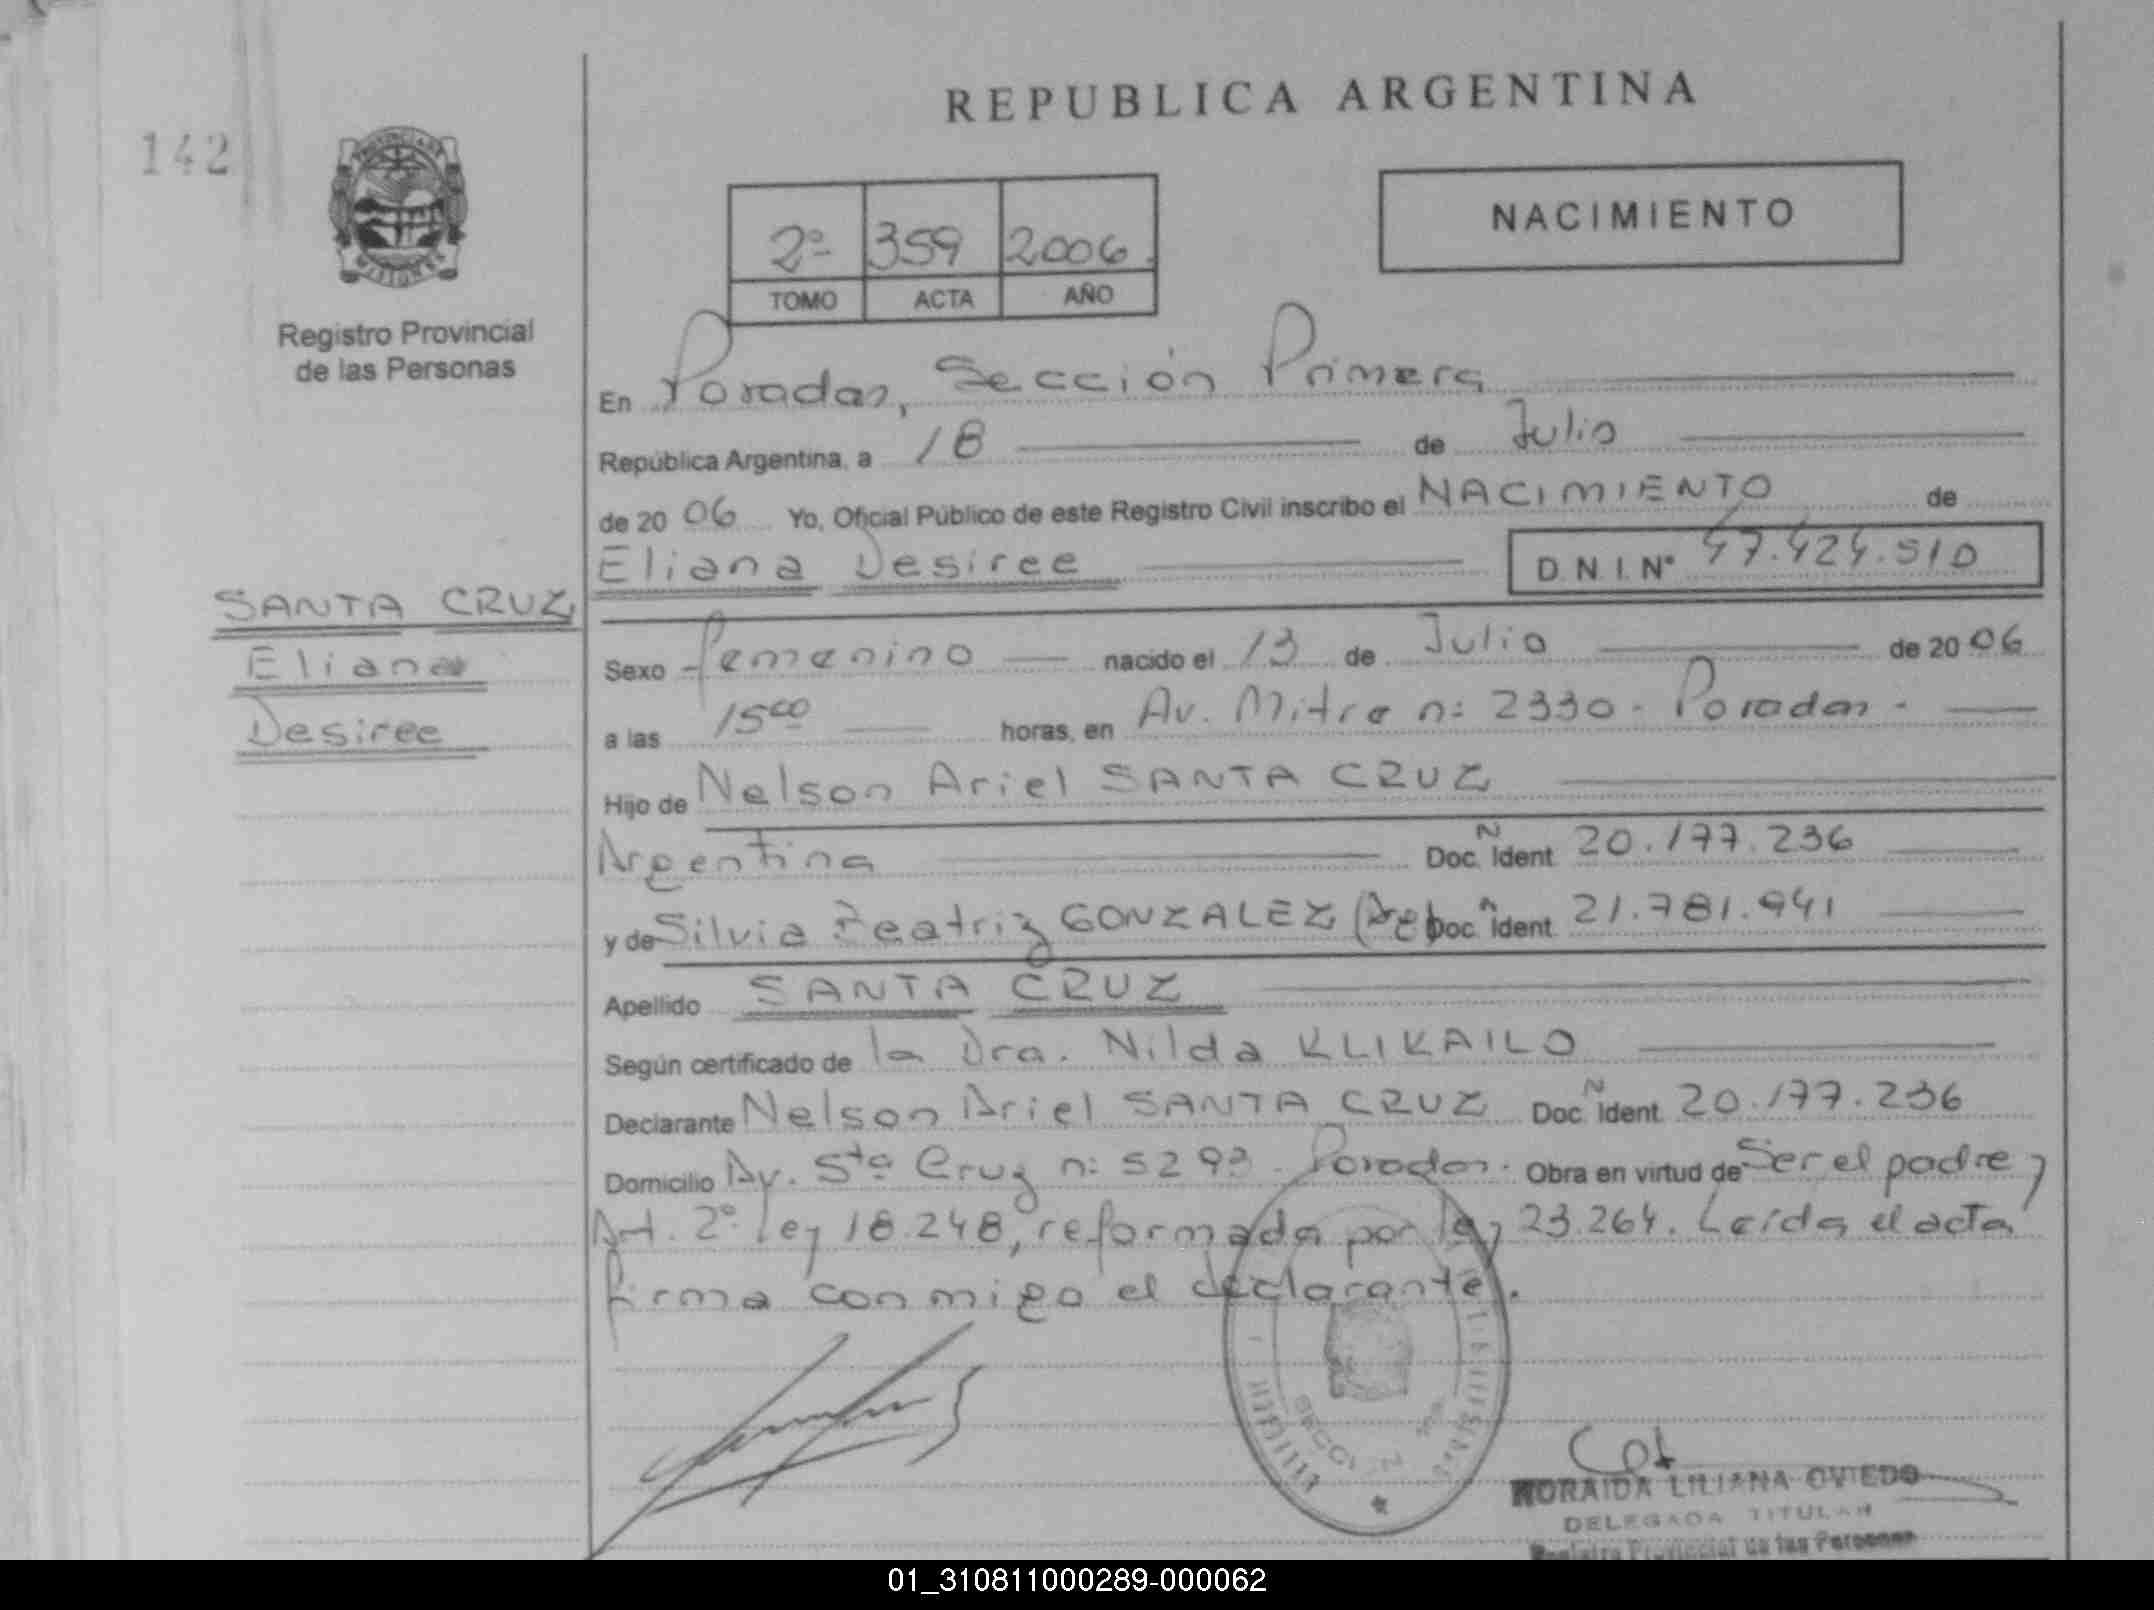 REPUBLICA ARGENTINA
142
NACIMIENTO
2º 359 2006
TOMO ACTA AÑO
Registro Provincial
de las Personas
En Posadas, Sección Primera
República Argentina, a 18 de Julio
de 2006 Yo, Oficial Público de este Registro Civil inscribo el NACIMIENTO de
Eliana Desiree D.N.I. Nº 47.424.510
SANTA CRUZ
Eliana
Desiree
Sexo femenino nacido el 13 de Julio de 2006
a las 15 00 horas, en Av. Mitre nº 2330 - Posadas -
Hijo de Nelson Ariel SANTA CRUZ
Argentina Doc. Ñ Ident. 20.177.236
y de Silvia Beatriz GONZALEZ (Arg) Doc. Ident. 21.781.941
Apellido SANTA CRUZ
Según certificado de la Dra. Nilda KLIKAILO
Declarante Nelson Ariel SANTA CRUZ Doc. Ñ Ident. 20.177.236
Domicilio Av. Sta Cruz nº 5293 - Posadas. Obra en virtud de Ser el padre y
Art. 2º ley 18.248, reformada por ley 23.264. Leída el acta
firma conmigo el declarante.
SECCION
LILIANA OVIEDO
DELEGADA TITULAR
Registro Provincial de las Personas
01_310811000289-000062